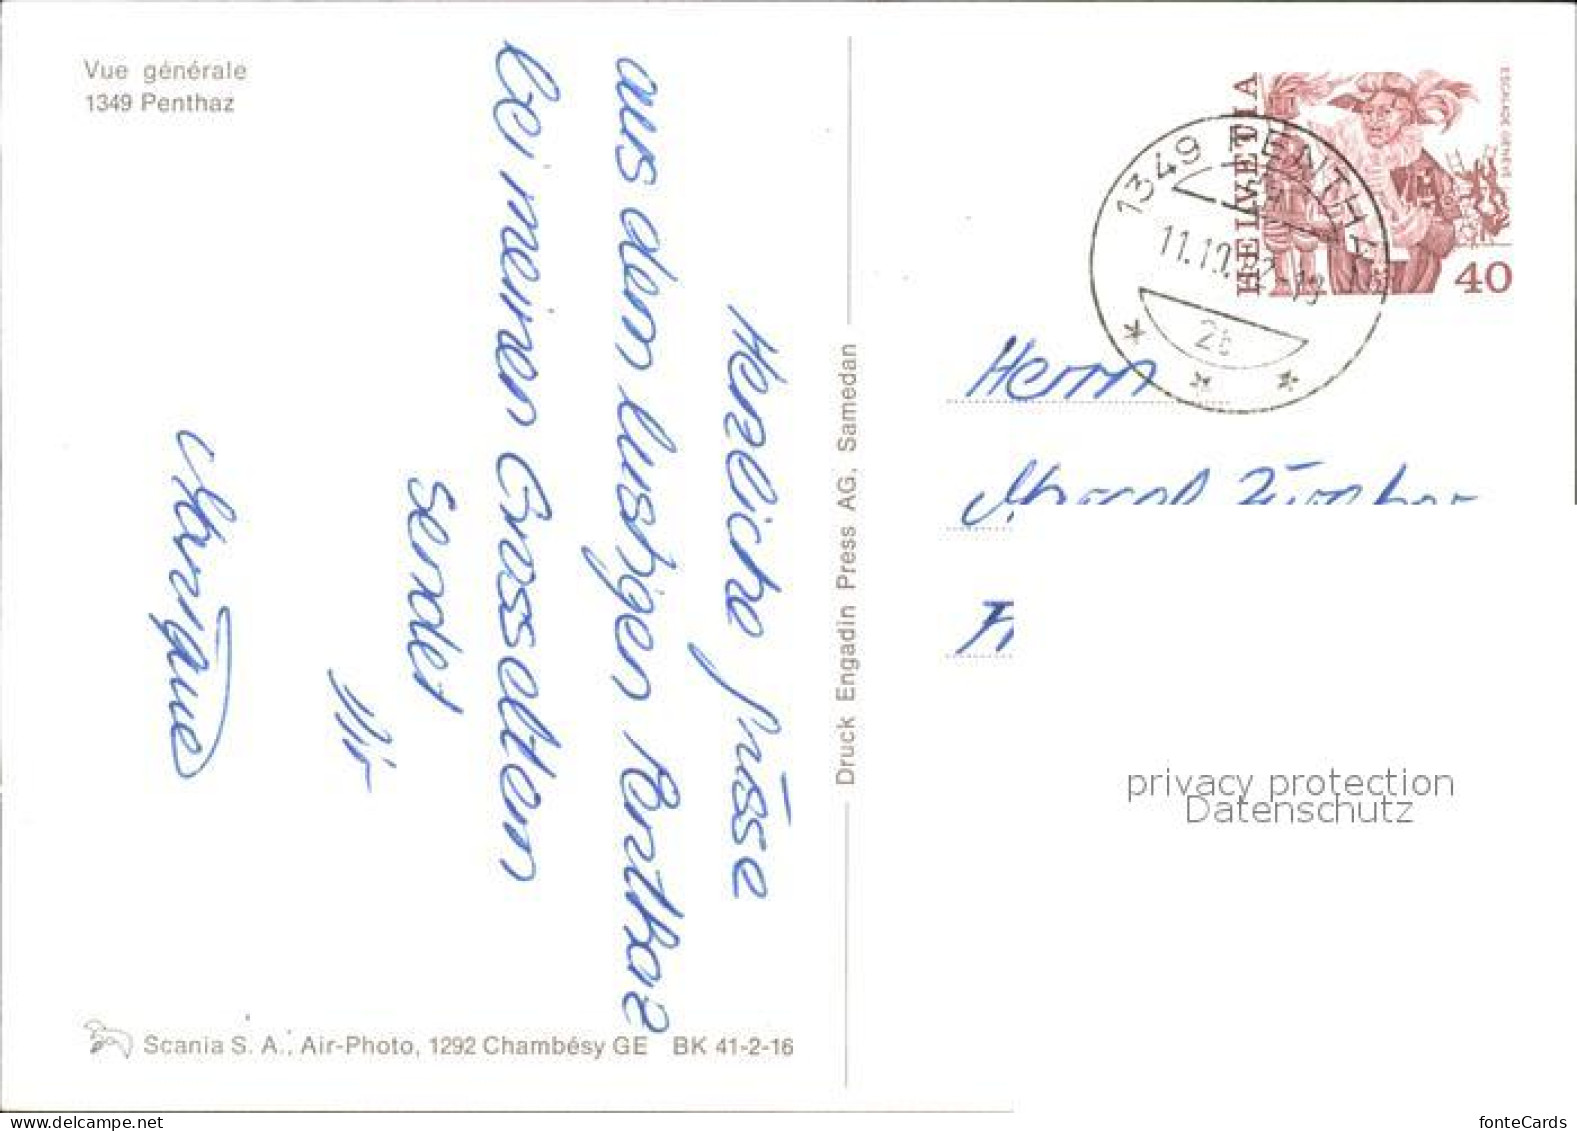 Vue générale
1349 Penthaz
Herzliche Grüsse
aus dem lustigen Penthaz
bei meinen Grosseltern
sendet
Dir
Monique
Scania S. A., Air-Photo, 1292 Chambésy GE BK 41-2-16
Druck Engadin Press AG, Samedan
HELVETIA
ESCALADE GENÈVE
40
1349 PENTHAZ
11.10.82-18
2b
Herrn
privacy protection
Datenschutz
fonteCards